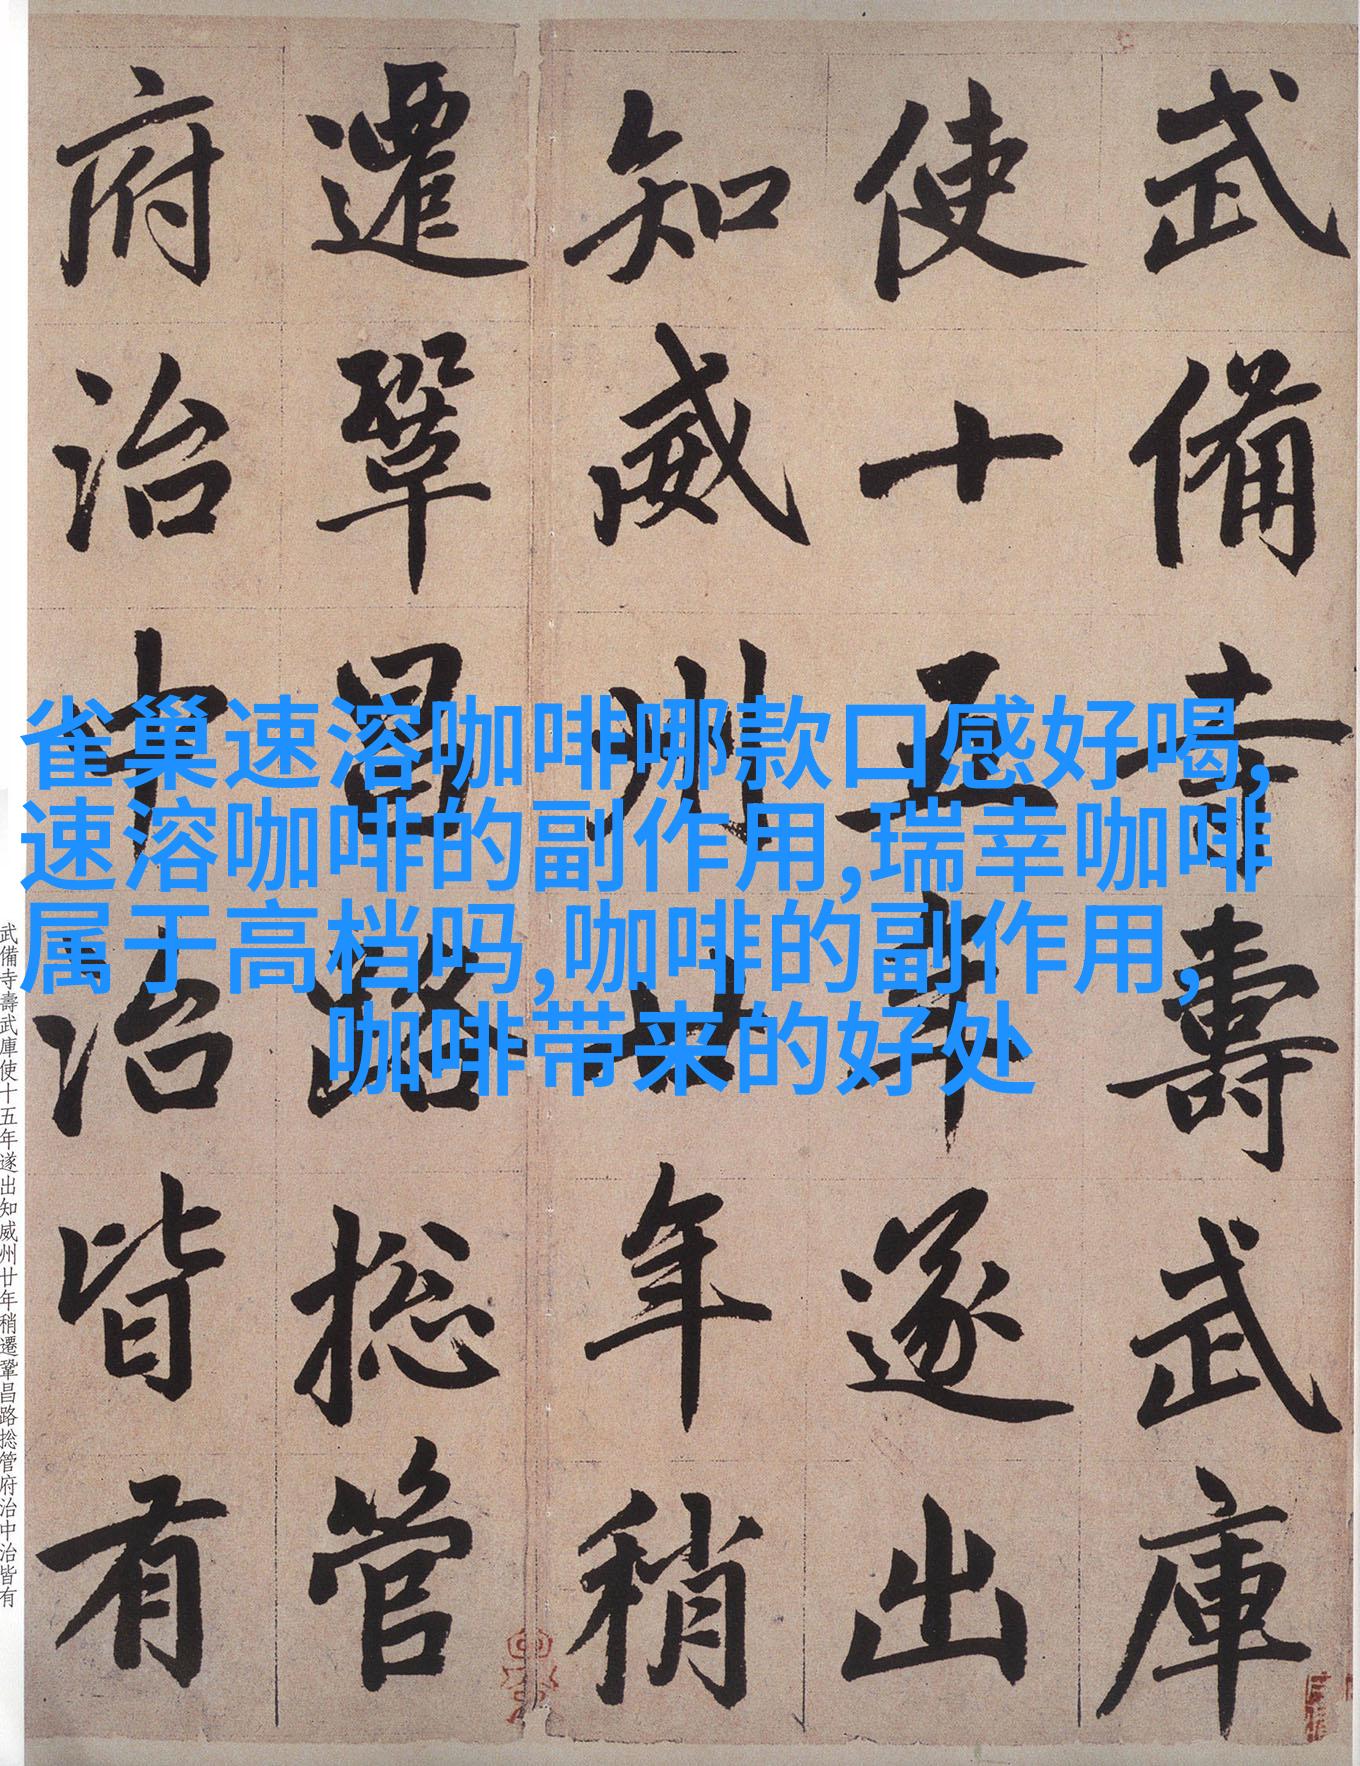 武備寺壽武庫
使十五年遂出
知威州廿年稍
遷鞏昌路捴管
府治中治皆有
雀巢速溶咖啡哪款口感好喝,
速溶咖啡的副作用,瑞幸咖啡
属于高档吗,咖啡的副作用,
咖啡带来的好处
武備寺壽武庫使十五年遂出知威州廿年稍遷鞏昌路捴管府治中治皆有